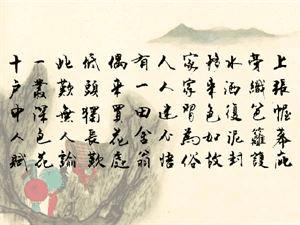 上張幄幕庇
旁織笆籬護
水洒復泥封
移來色如故
家家習為俗
人人迷不悟
有一田舍翁
偶來買花處
低頭獨長歎
此歎無人諭
一叢深色花
十戶中人賦